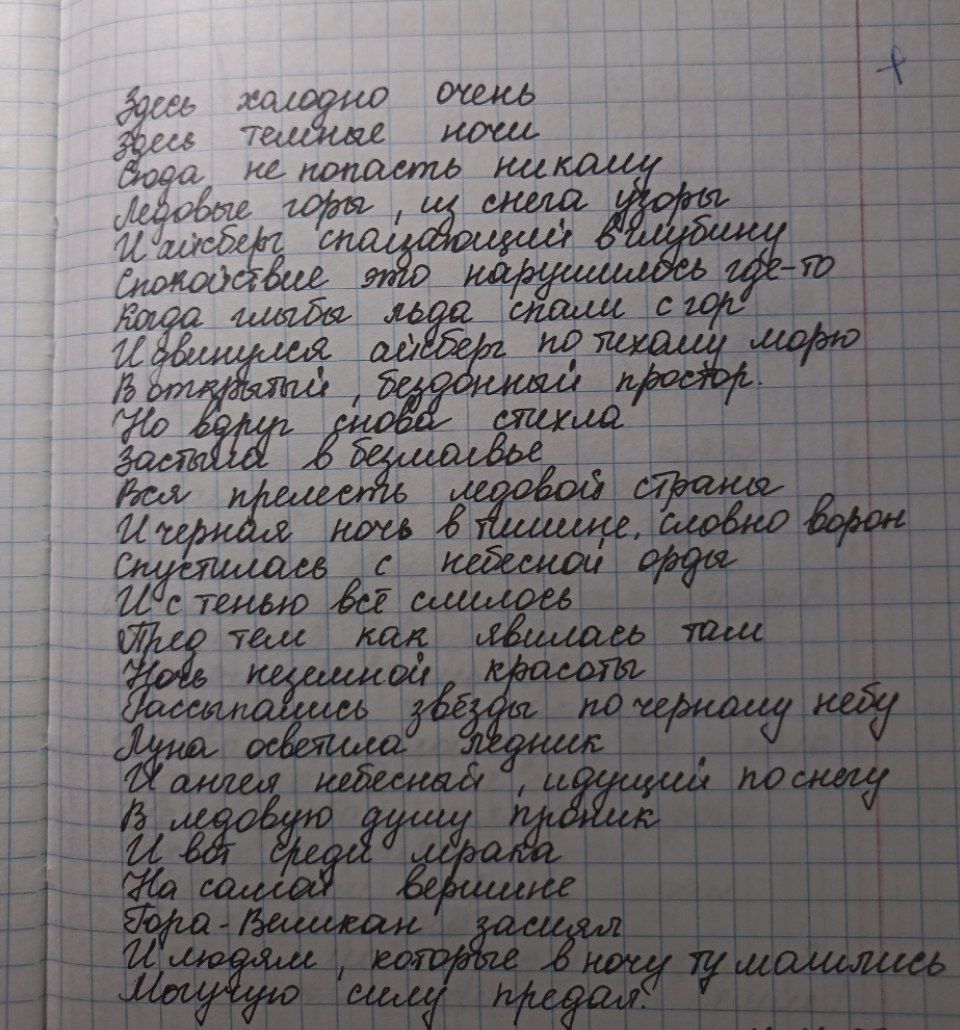 Здесь холодно очень
Здесь темные ночи
Сюда не попасть никому
Ледовые горы, из снега узоры
И айсберг сползающий в глубину
Спокойствие это нарушилось где-то
Когда глыбы льда спали с гор
И двинулся айсберг по тихому морю
В открытый, бездонный простор.
Но вдруг снова стихла
Застыла в безмолвье
Вся прелесть ледовой страны
И черная ночь в тишине, словно ворон
Спустилась с небесной орды
И с тенью всё слилось
Пред тем как явилась там
Ночь неземной красоты
Рассыпались звёзды по черному небу
Луна осветила ледник
И ангел небесный, идущий по снегу
В ледовую душу проник
И вот среди мрака
На самой вершине
Гора-Великан засиял
И людям, которые в ночу ту молились
Могучую силу предал.